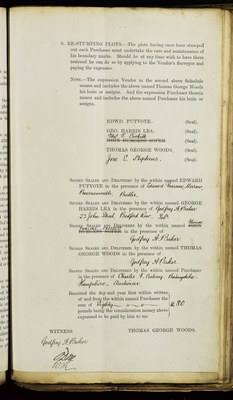 6. RE-STUMPING PLOTS.—The plots having been stumped
out each Purchaser must undertake the care and maintenance of
his boundary marks. Should he at any time wish to have them
restored he can do so by applying to the Vendor's Surveyor and
paying the expenses.
NOTE.—The expression Vendor in the second above Schedule
means and includes the above named Thomas George Woods
his heirs or assigns. And the expression Purchaser therein
means and includes the above named Purchaser his heirs or
assigns.
EDWD. PUTVOYE. (Seal).
GEO. HARRIS LEA. (Seal).
(Seal).
THOMAS GEORGE WOODS. (Seal).
Jane C. Stephens. (Seal).
SIGNED SEALED AND DELIVERED by the within named EDWARD
PUTVOYE in the presence of Edward
Butler.
SIGNED SEALED AND DELIVERED by the within named GEORGE
HARRIS LEA in the presence of Godfrey A Parker
23 John Street Bedford Row
SIGNED SEALED AND DELIVERED by the within named
in the presence of
Godfrey A Parker
SIGNED SEALED AND DELIVERED by the within named THOMAS
GEORGE WOODS in the presence of
Godfrey A Parker
SIGNED SEALED AND DELIVERED by the within named Purchaser
in the presence of Charles
Hampshire, Auctioneer
Received the day and year first within written,
of and from the within named Purchaser the
sum of Eighty £80
pounds being the consideration money above
expressed to be paid by him to me
WITNESS THOMAS GEORGE WOODS.
Godfrey A Parker